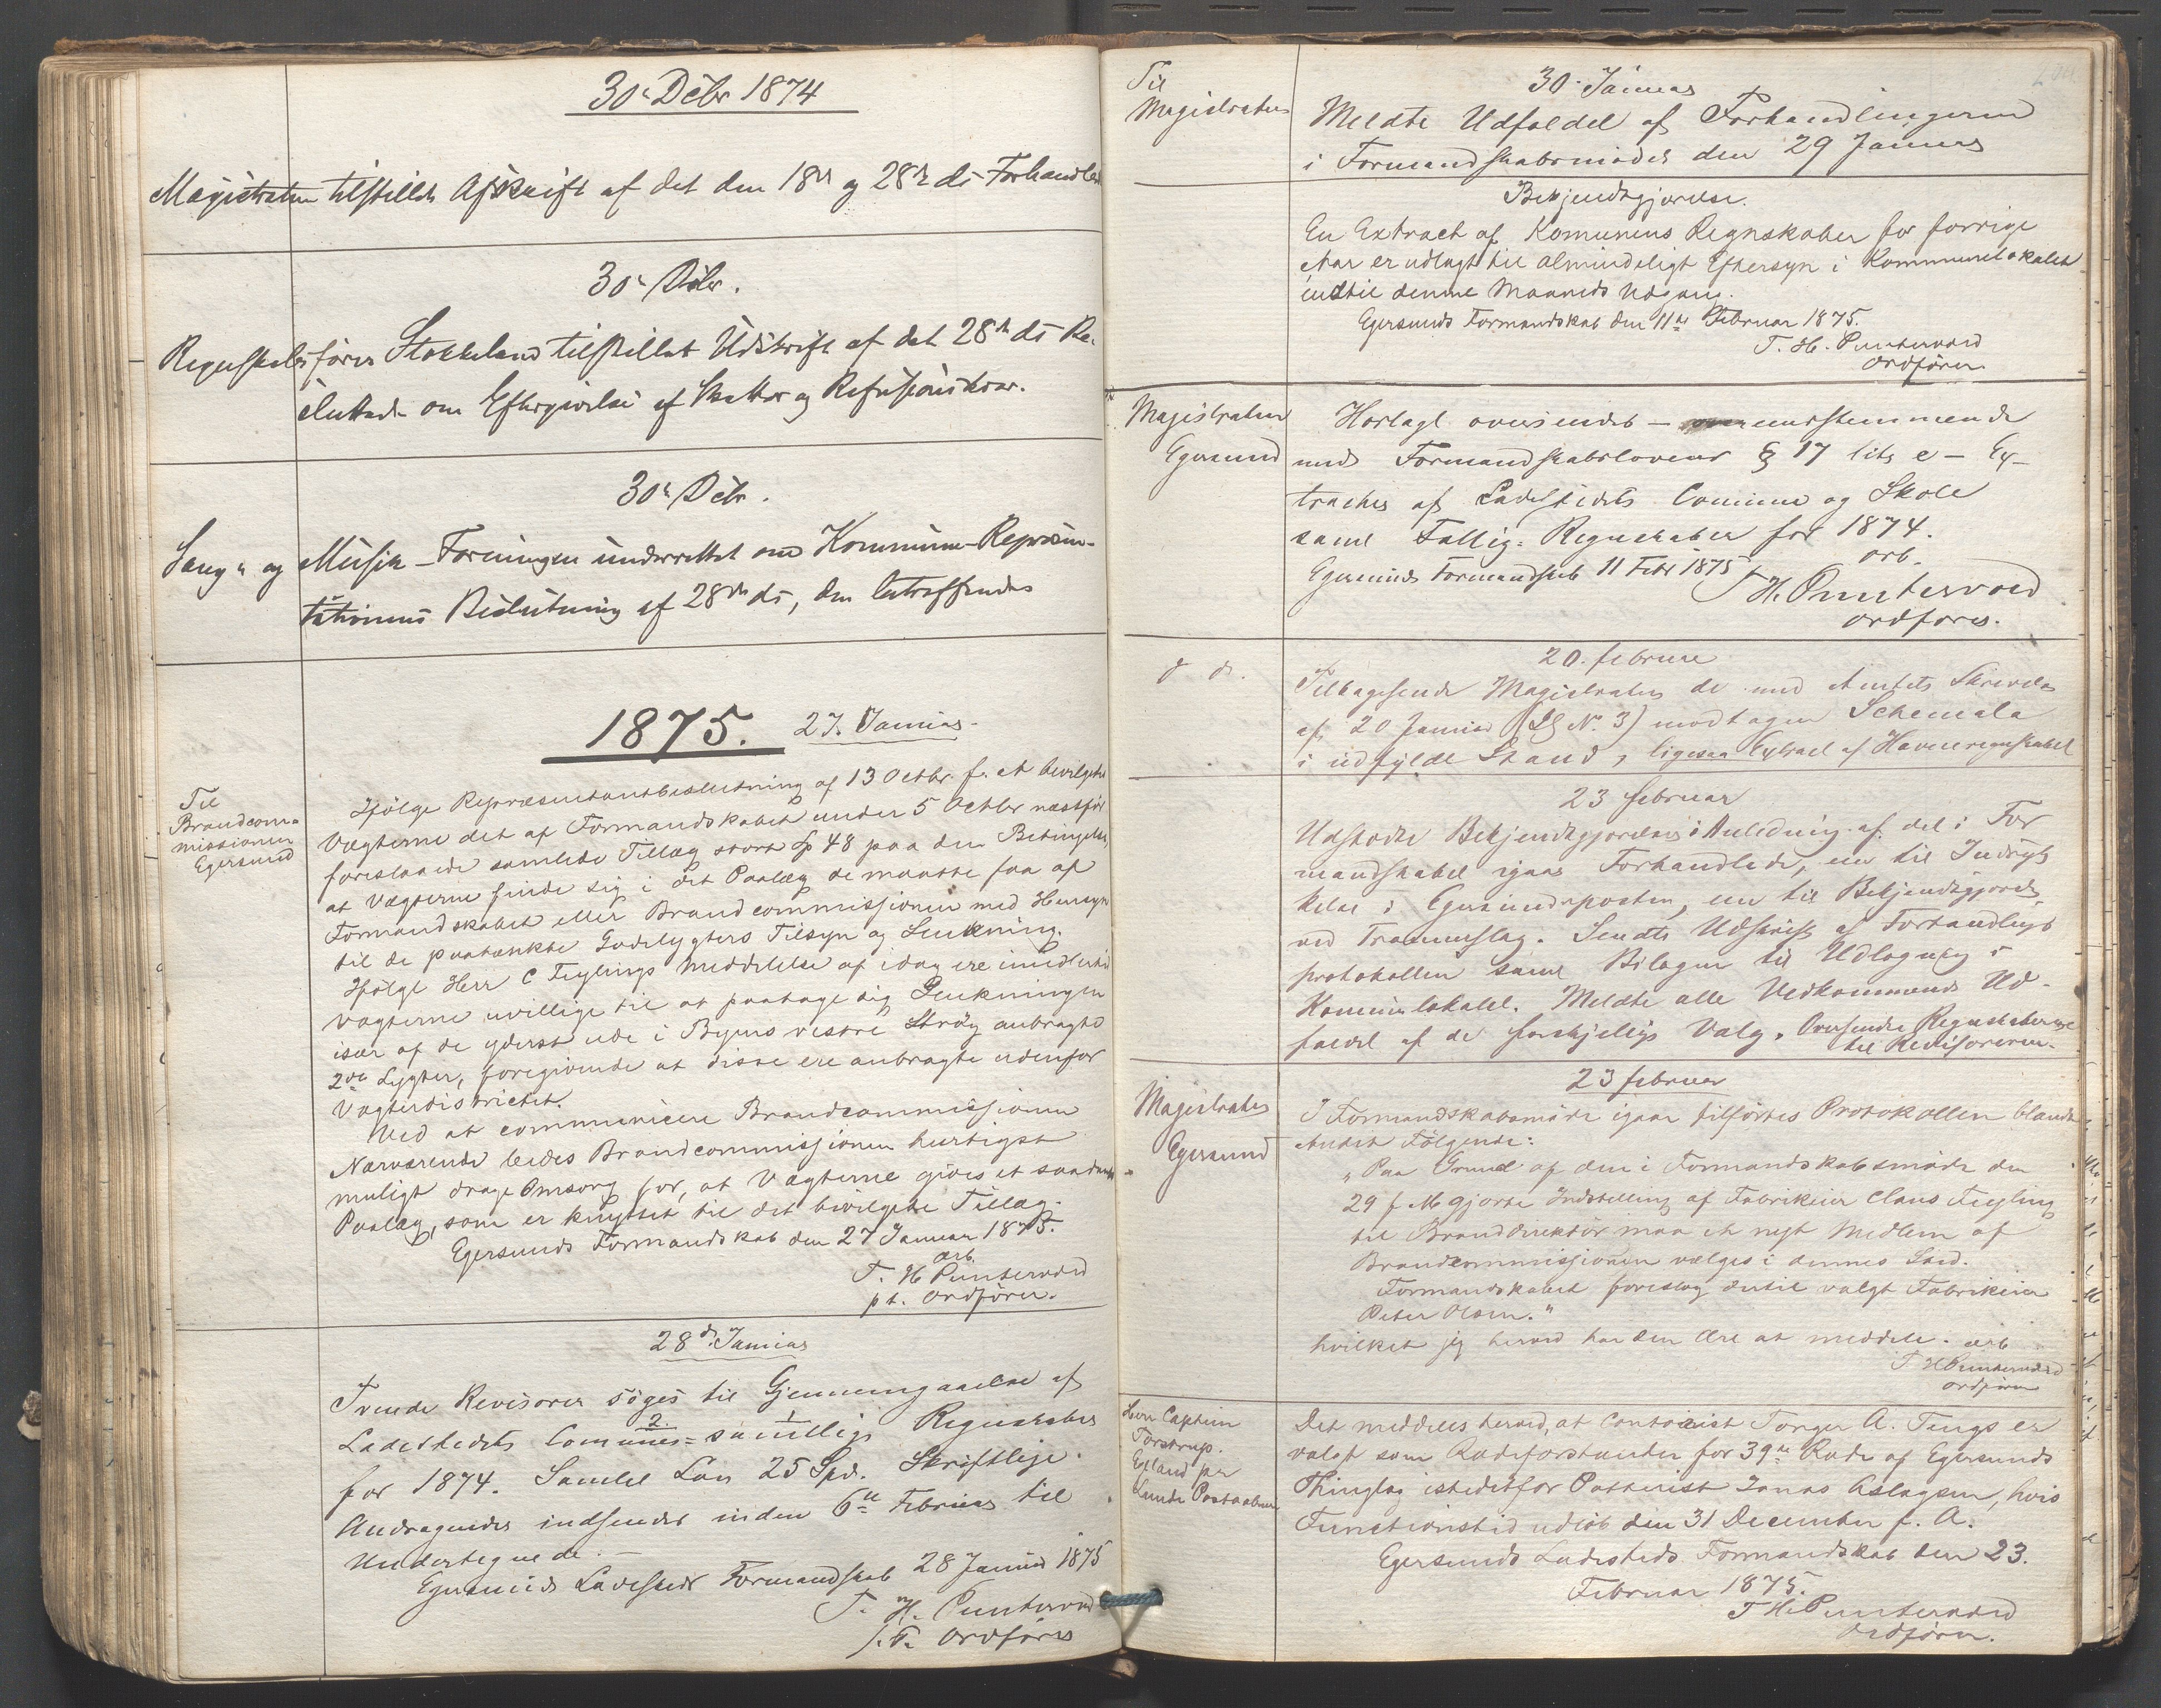 30te Debr 1874
Magistraten tilstillet Afskrift af det den 18de og 28de ds Forhandlede
30te Debr.
Regnskabsfører Stokkeland tilstillet Udskrift af det 28de ds Be-
sluttede om Eftergivelse af Skatter og Refusionskrav.
30te Debr.
Sang- og Musik-Foreningen underrettet om Kommune-Repræsen-
tationens Beslutning af 28de ds, den betræffende
1875. 27. Januar.
Til
Brandcom-
missionen
Egersund
Ifølge Repræsentantbeslutning af 13 Octbr. f. A. bevilgedes
Vægterne det af Formandskabet under 5 Octbr næstfør
foreslaaede samlede Tillæg stort Sp 48 paa den Betingelse,
at Vægterne finde sig i det Paalæg de maatte faa af
Formandskabet eller Brandcommissionen med Hensyn
til de paatænkte Gadelygters Tilsyn og Slukning.
Ifølge Herr C Feylings Meddelelse af idag ere imidlertid
Vægterne uvillige til at paatage sig Slukningen
især af de yderst ude i Byens vestre Strøg anbragte
2de Lygter, foregivende at disse ere anbragte udenfor
Vægterdistrictet.
Ved at communicere Brandcommissionen
Nærværende bedes Brandcommissionen hurtigst
muligt drage Omsorg for, at Vægterne gives et saadant
Paalæg, som er knyttet til det bevilgede Tillæg.
Egersunds Formandskab den 27 Januar 1875.
ærb.
T. H. Puntervold
pt. Ordfører.
28de Januar
Tvende Revisorer søges til Gjennemgaaelse af
2. 1
Ladestedets Communes= samtlige Regnskaber
for 1874. Samlet Løn 25 Spd. Skriftlige
Andragender indsendes inden 6te Februar til
Undertegnede.
Egersunds Ladesteds Formandskab 28 Januar 1875
T. H. Puntervold
p.T. Ordfører
Til
Magistraten
30. Januar
Meldte Udfaldet af Forhandlingerne
i Formandskabsmødet den 29 Januar
Bekjendtgjørelse.
En Extract af Komunens Regnskaber for forrige
Aar er udlagt til almindeligt Eftersyn i Kommunelokalet
indtil denne Maaneds Udgang.
Egersunds Formandskab den 11te Februar 1875.
T. H. Puntervold
Ordfører.
Magistraten
Egersund
Hoslagt oversendes – overensstemmende
med Formandskabslovens § 17 litr e – Ex-
tracter af Ladestedets Comune og Skole
samt Fattig-Regnskaber for 1874.
ærb.
Egersunds Formandskab 11 Febr 1875
T H. Puntervold
Ordfører.
d ds.
20. februar
Tilbagesendt Magistraten de med Amtets Skrivelse
af 20 Januar (N. 3) modtagne Schemata
i udfyldt Stand, ligesaa Extract af Havneregnskabet
23 Februar
Udstedte Bekjendtgjørelser i Anledning af det i For
mandskabet igaar Forhandlede, en til Indryk
kelse i Egersundsposten, en til Bekjendtgjørelse
ved Trommeslag. Sendte Udskrift af Forhandlings
protokollen samt Bilagene til Udlægning i
Komunelokalet. Meldte alle Vedkommende Ud-
faldet af de forskjellige Valg. Oversendte Regnskaberne
til Revisoreren.
Magistraten
Egersund
23 februar
I Formandskabsmøde igaar tilførtes Protokollen blandt
Andet Følgende:
"Paa Grund af den i Formandskabsmøde den
29 f. M gjorte Indstilling af Fabrikeier Claus Feyling
til Branddirektør maa et nyt Medlem af
Brandcommissionen vælges i dennes Sted.
Formandskabet foreslog dertil valgt Fabrikeier
Peter Olsen."
hvilket jeg herved har den Ære at meddele.
ærb
T H Puntervold
Ordfører
Herr Captein
Torstrup.
Eiland pr
Lunde Postaabneri
Det meddeles herved, at Contorist Torger A. Tengs er
valgt som Rodeforstander for 39te Rode af Egersunds
Thinglag istedetfor Potterist Jonas Aslagsen, hvis
Functionstid udløb den 31 December f. A.
Egersunds Ladesteds Formandskab den 23.
Februar 1875.
T H. Puntervold
Ordfører.